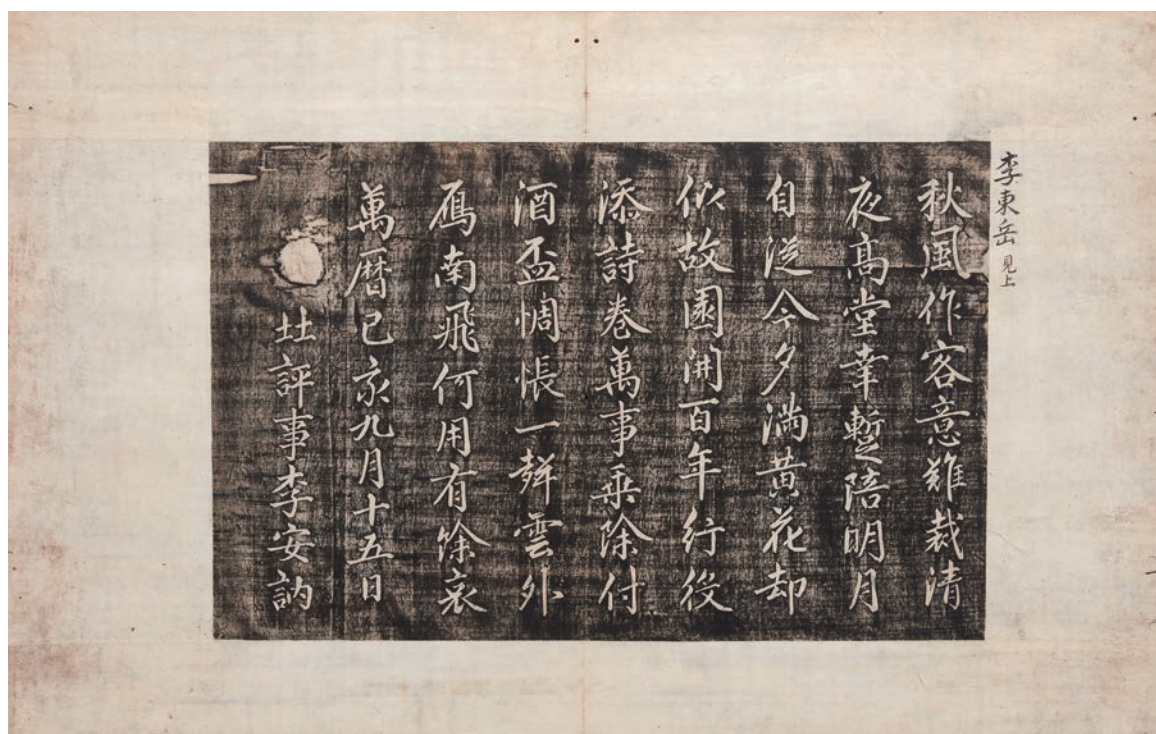 李東岳 見上
秋風作客意難裁清
夜高堂幸蹔陪明月
自從今夕滿黃花却
依故園開百年行役
添詩卷萬事乘除付
酒盃惆悵一聲雲外
鴈南飛何用有餘哀
萬曆己亥九月十五日
北評事李安訥